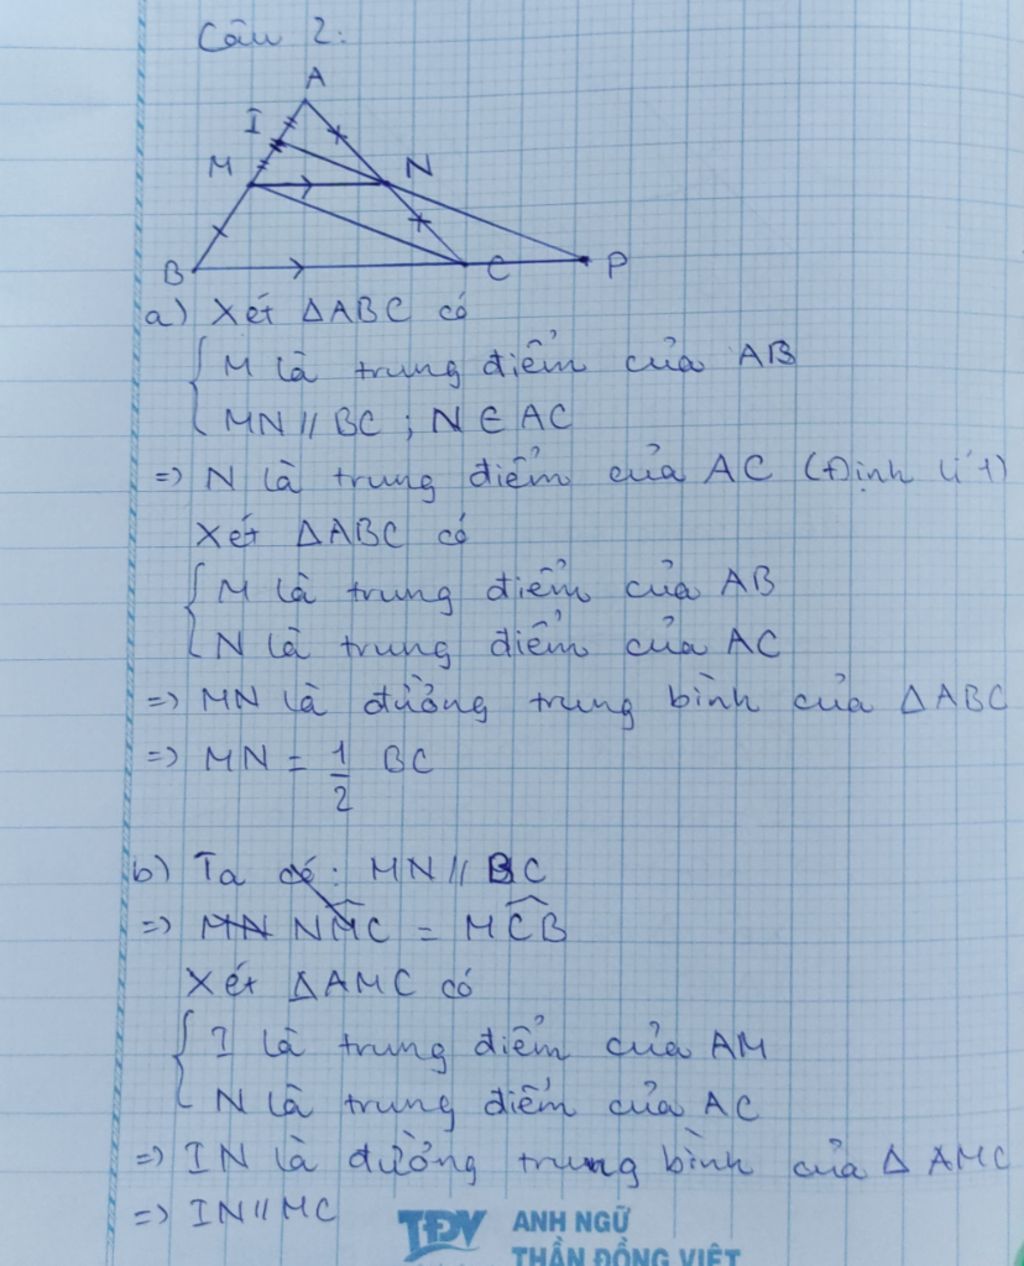 Câu 2:
A
I
M
N
B
C
P
a) Xét ΔABC có
M là trung điểm của AB
MN // BC ; N ∈ AC
=> N là trung điểm của AC (Định lí 1)
Xét ΔABC có
M là trung điểm của AB
N là trung điểm của AC
=> MN là đường trung bình của ΔABC
=> MN = 1/2 BC
b) Ta có: MN // BC
=> NMC = MCB
Xét ΔAMC có
I là trung điểm của AM
N là trung điểm của AC
=> IN là đường trung bình của Δ AMC
=> IN // MC
TĐV ANH NGỮ
THẦN ĐỒNG VIỆT